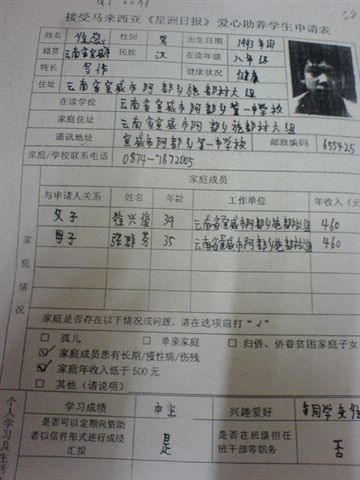 接受马来西亚《星洲日报》爱心助养学生申请表
姓名 性别 男 出生日期 1993年
籍贯 云南省宣威市 民族 汉 在读年级 八年级
特长 写作 健康状况 健康
住址 云南省宣威市阿都乡施都村六组
在读学校 云南省宣威市阿都乡第一中学校
家庭住址 云南省宣威市阿都乡施都村六组
通讯地址 宣威市阿都乡第一中学校 邮政编码 655425
家庭/学校联系电话 0874-7872005
家庭成员
与申请人关系 姓名 年龄 工作单位 年收入（元
父子 徐兴 39 云南省宣威市阿都乡施都村 460
母子 张 芳 35 云南省宣威市阿都乡施都村 460
家庭情况
家庭是否存在以下情况或问题，请在选项前打“√”
□ 孤儿 □ 单亲家庭 □ 归侨、侨眷贫困家庭子女
☑ 家庭成员患有长期/慢性病/伤残
☑ 家庭年收入低于 500 元
□ 其他（请说明）
个人学习及生活
学习成绩 中上 兴趣爱好 与同学交往
是否可以定期向资助者以信件形式进行成绩汇报 是 是否在班级担任班干部等职务 否